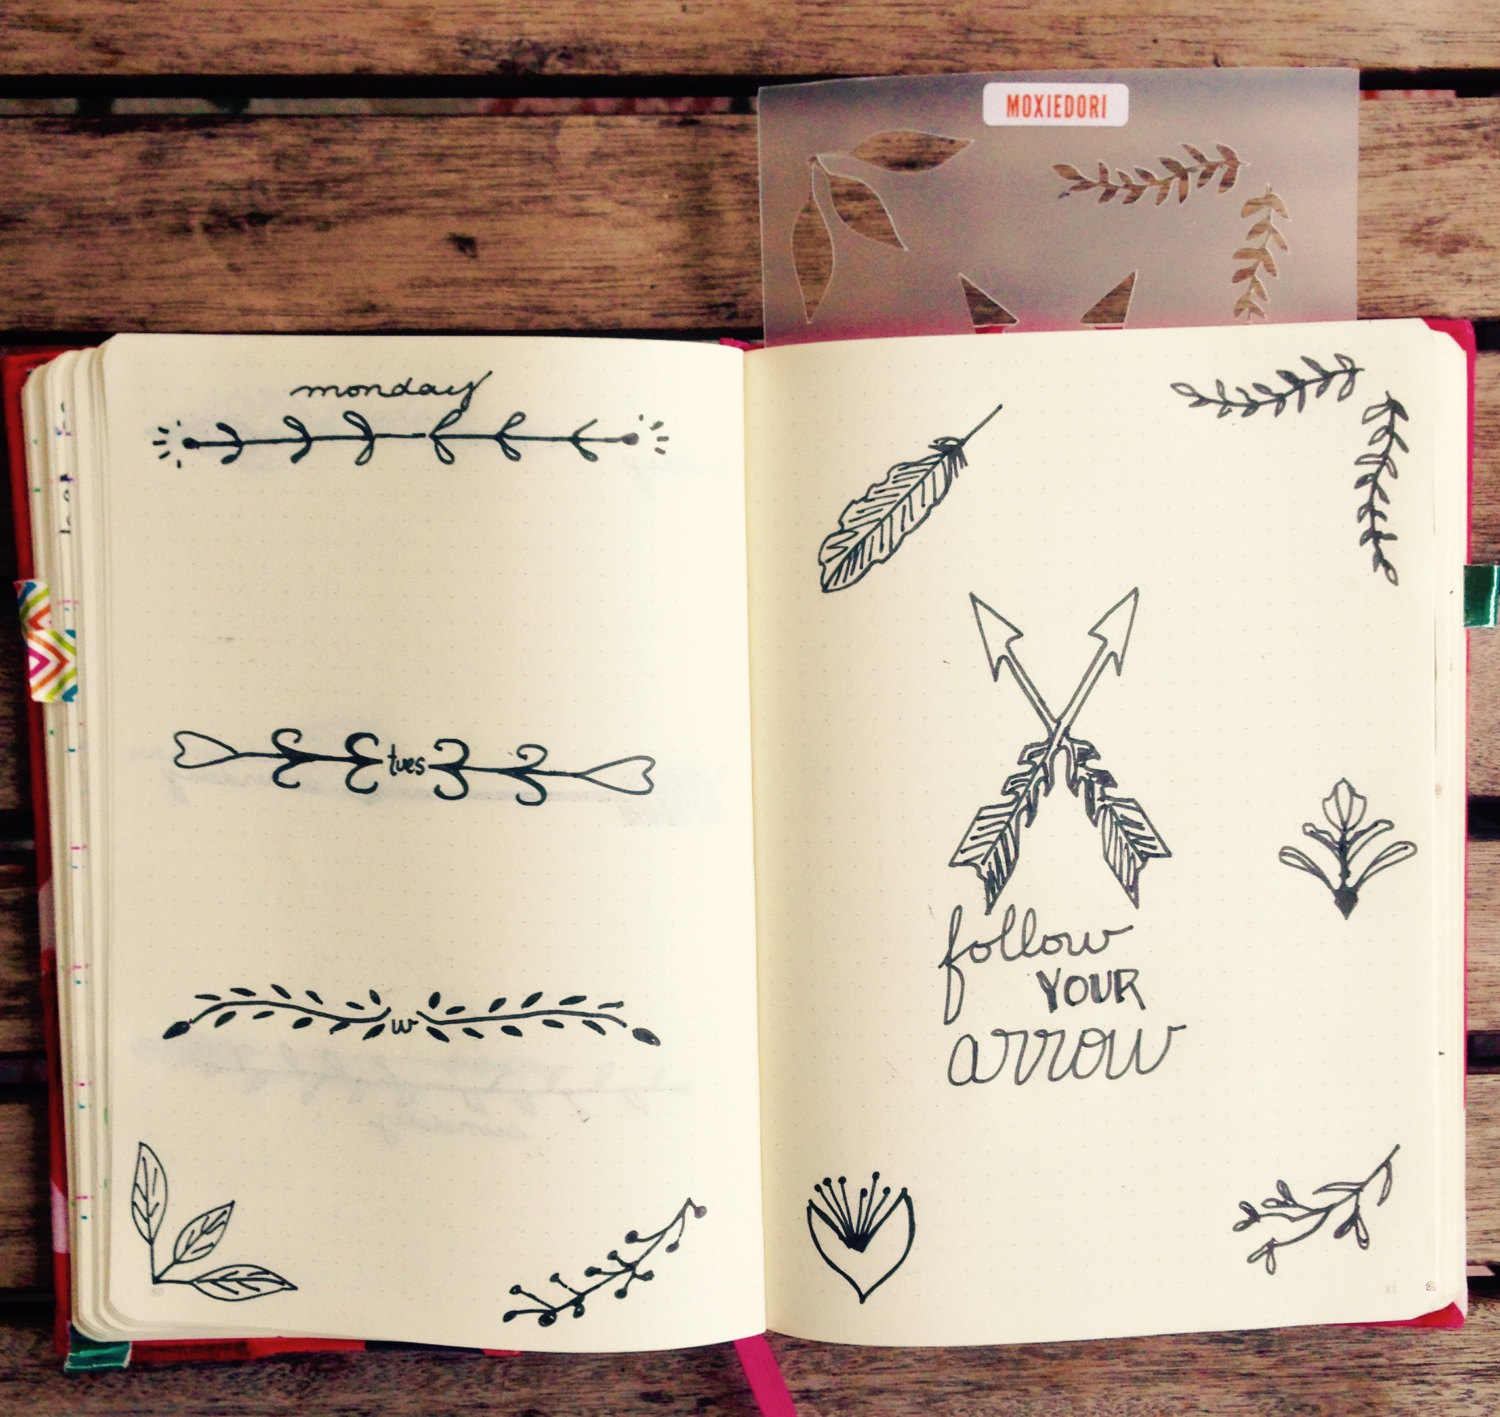 MOXIEDORI
monday
tues
w
follow
YOUR
arrow
81